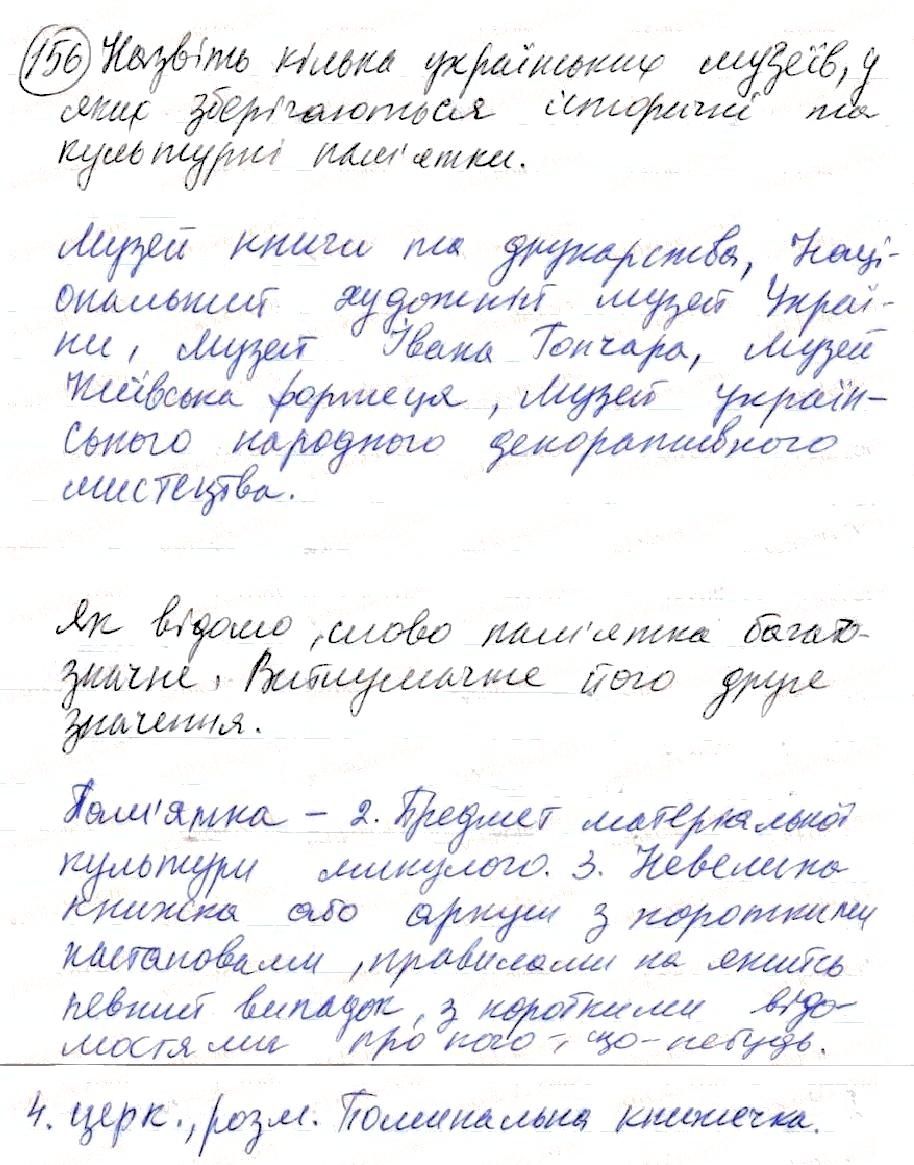 156 Назвіть кілька українських музеїв, у
яких зберігаються історичні та
культурні пам'ятки.
Музей книги та друкарства, Наці-
ональний художній музей Украї-
ни, Музей Івана Гончара, Музей
Київська фортеця, Музей україн-
ського народного декоративного
мистецтва.
Як відомо, слово пам'ятка багато-
значне. Витлумачте його друге
значення.
Пам'ятка – 2. Предмет матеріальної
культури минулого. 3. Невелика
книжка або аркуш з короткими
настановами, правилами на якийсь
певний випадок, з короткими відо-
мостями про кого-, що-небудь.
4. церк., розм. Поминальна книжечка.